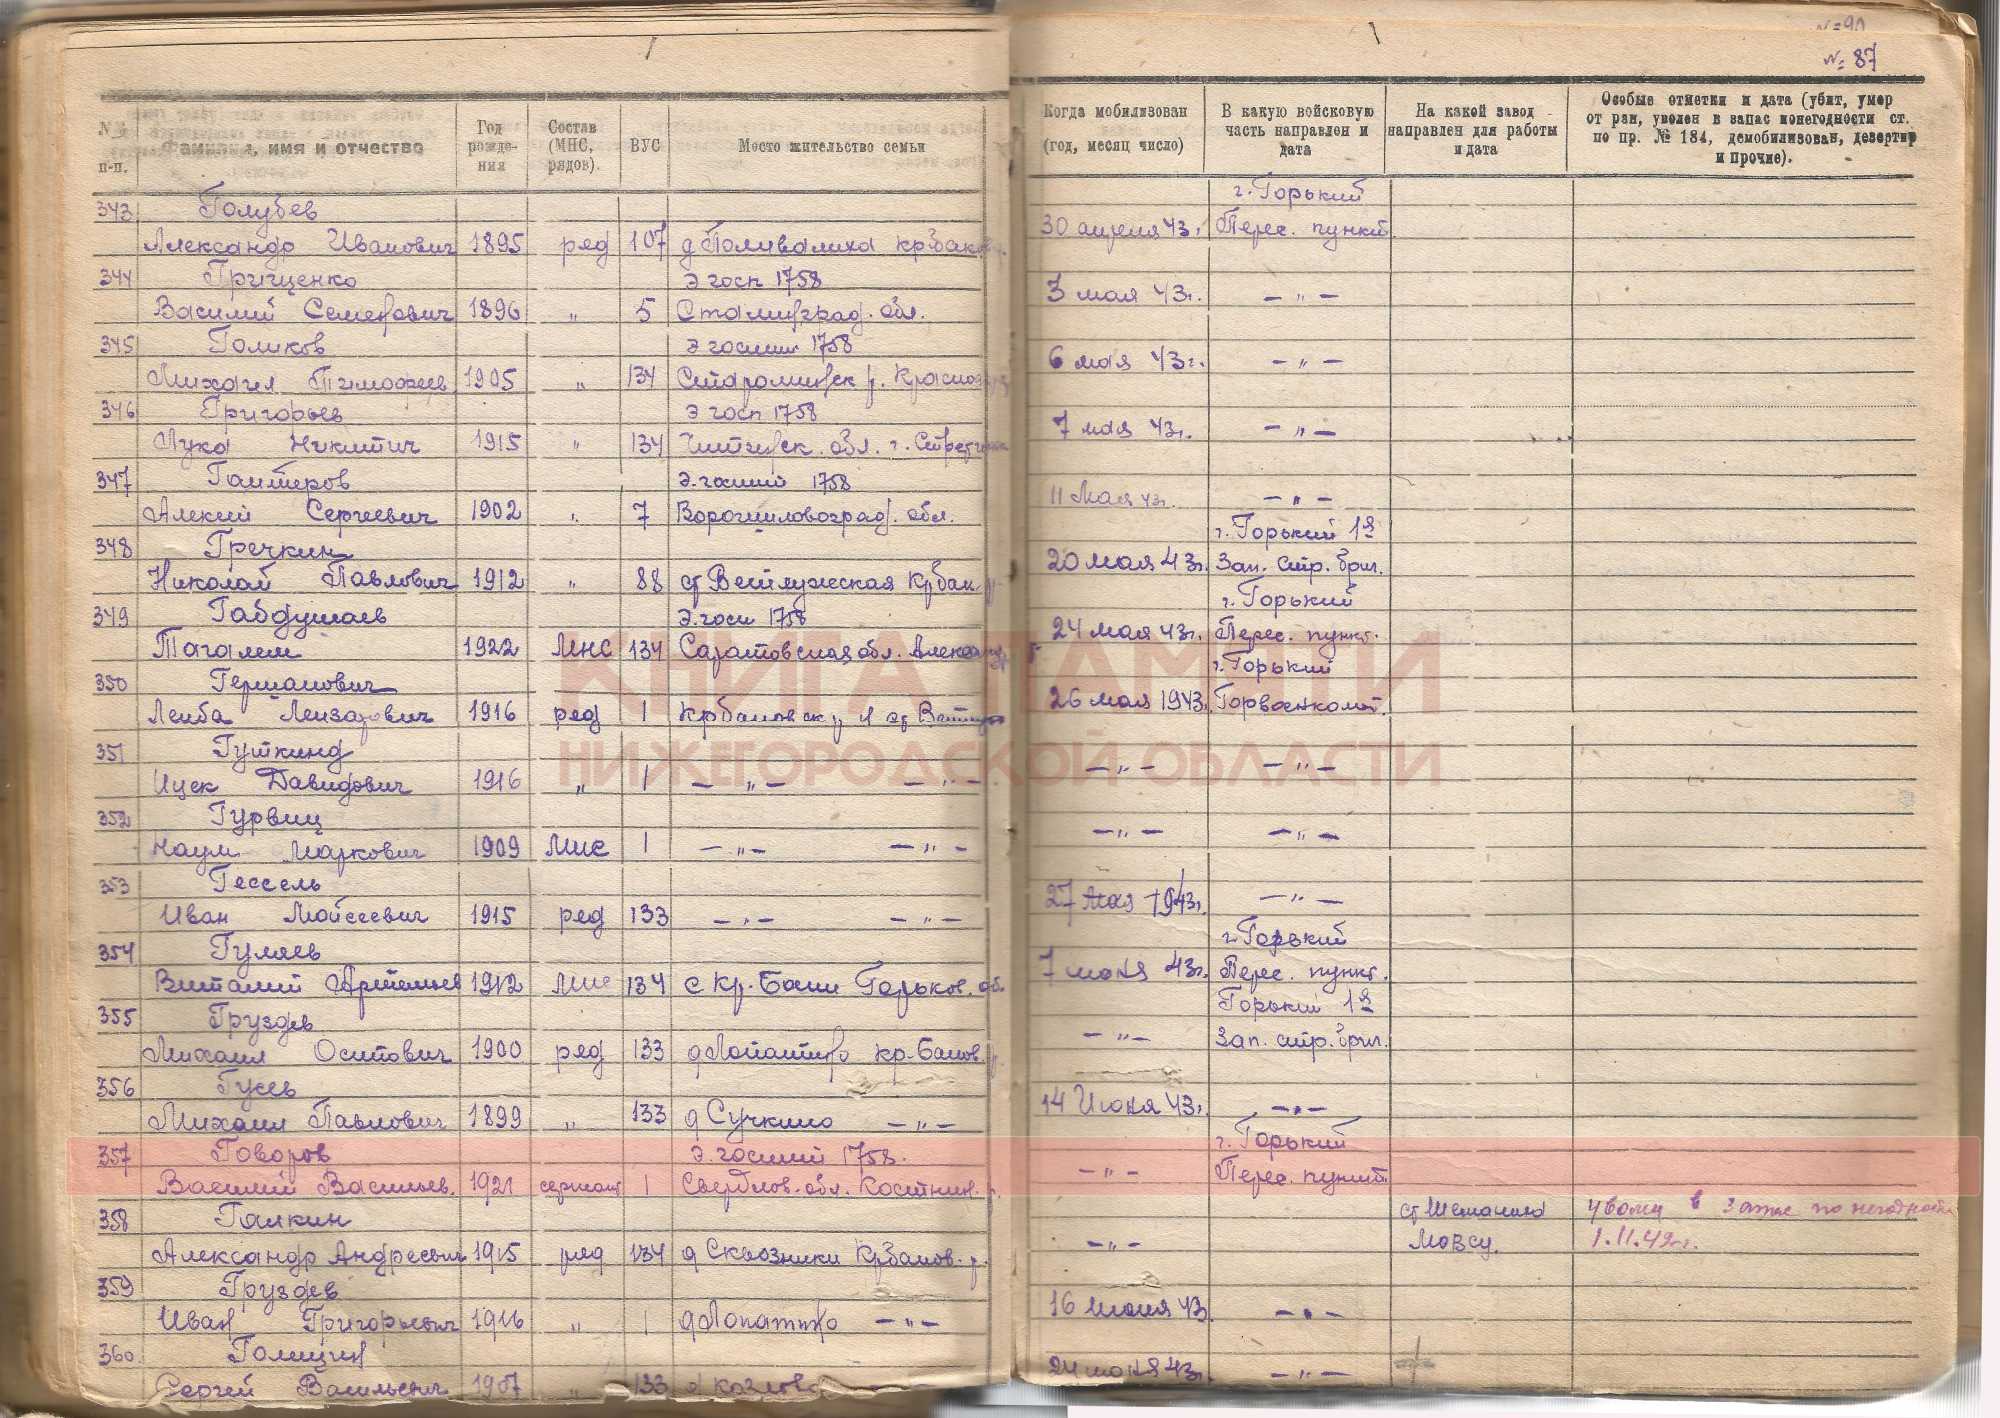 № 90
№ 87
№№ п-п. Фамилия, имя и отчество Год рождения Состав (МНС, рядов). ВУС Место жительство семьи Когда мобилизован (год, месяц число) В какую войсковую часть направлен и дата На какой завод направлен для работы и дата Особые отметки и дата (убит, умер от ран, уволен в запас понегодности ст. по пр. № 184, демобилизован, дезертир и прочие).
343 Голубев г. Горький
Александр Иванович 1895 ряд 107 д Поливалиха 30 апреля 43г. Перес. пункт
344 Грищенко Э госп 1758
Василий Семенович 1896 " 5 Сталинград. обл. 3 мая 43г. — " —
345 Голиков Э госпит 1758
Михаил Тимофеев. 1905 " 134 6 мая 43г. — " —
346 Григорьев Э госп 1758
Лука Никитич 1915 " 134 Читинск. обл. 7 мая 43г. — " —
347 Э. госпит 1758
Алексей Сергеевич 1902 " 7 Ворошиловоград. обл. 11 мая 43г. — " —
348 Гречкин г. Горький 1я
Николай Павлович 1912 " 88 ст Ветлужская 20 мая 43г. Зап. стр. бриг.
349 Габдушаев Э. госп 1758 г. Горький
1922 МНС 134 Саратовская обл. 24 мая 43г. Перес. пункт.
350 Германович г. Горький
Лейба Лейзарович 1916 ряд 1 26 мая 1943г. Горвоенкомат.
351 Гуткинд
Ицек Давидович 1916 " 1 — " — — " — — " — — " —
352 Гурвиц
Наум Маркович 1909 МНС 1 — " — — " — — " — — " —
353 Гессель
Иван Мойсеевич 1915 ряд 133 — " — — " — 27 мая 1943г. — " —
354 Гуляев г. Горький
Виталий 1912 МНС 134 с Кр. Баки Горьков. об. 7 июня 43г. Перес. пункт.
355 Груздев Горький 1я
Михаил Осипович 1900 ряд 133 д Лопатино — " — Зап. стр. бриг.
356 Гусев
Михаил Павлович 1899 " 133 д Сучкино — " — 14 Июня 43г. — " —
357 Говоров Э. госпит 1758. г. Горький
Василий Васильев. 1921 сержант 1 Свердлов. обл. — " — Перес. пункт.
358 Галкин ст Шеманино уволен в запас по негодности
Александр Андреевич 1915 ряд 134 д Сквозники — " — Мовсу. 1.11.42г.
359 Груздев
Иван Григорьевич 1916 " 1 д Лопатино — " — 16 июня 43г. — " —
360. Голицин
Сергей Васильевич 1907 " 133 24 июня 43г. — " —
КНИГА ПАМЯТИ
НИЖЕГОРОДСКОЙ ОБЛАСТИ